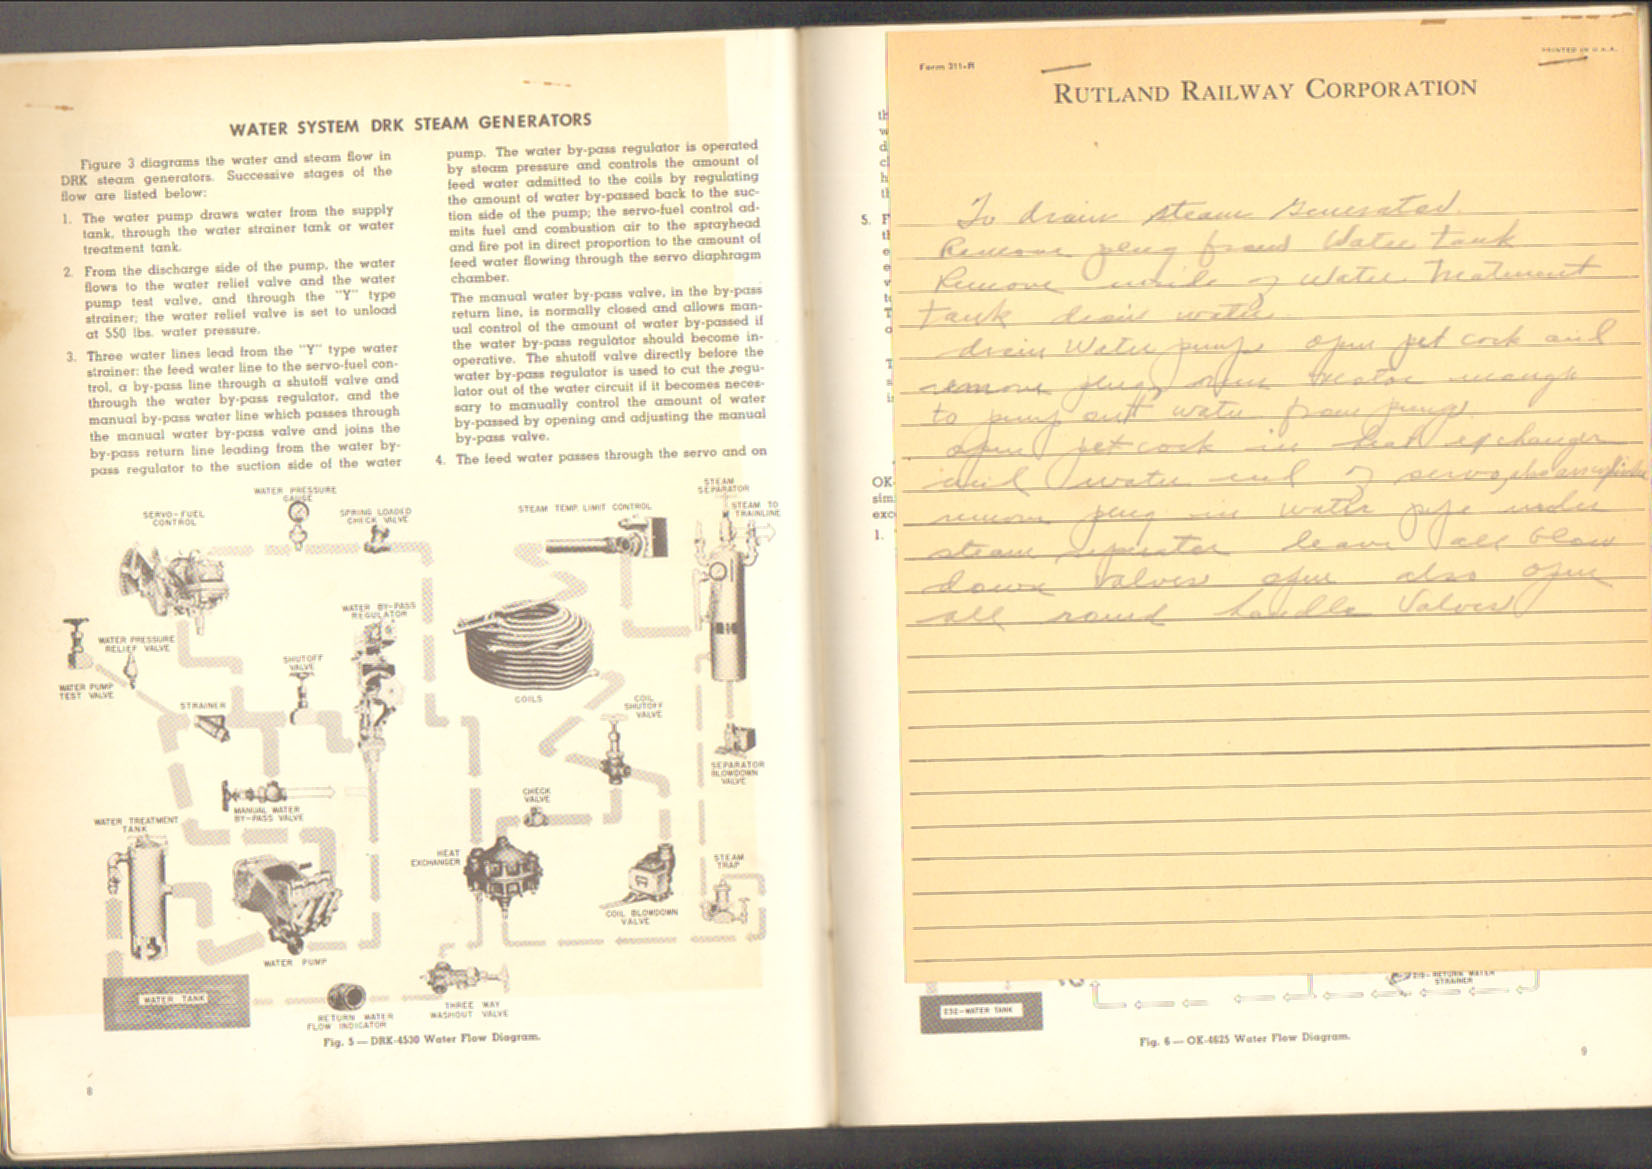 WATER SYSTEM DRK STEAM GENERATORS
Figure 3 diagrams the water and steam flow in
DRK steam generators. Successive stages of the
flow are listed below:
1. The water pump draws water from the supply
tank, through the water strainer tank or water
treatment tank.
2. From the discharge side of the pump, the water
flows to the water relief valve and the water
pump test valve, and through the "Y" type
strainer; the water relief valve is set to unload
at 550 lbs. water pressure.
3. Three water lines lead from the "Y" type water
strainer: the feed water line to the servo-fuel con-
trol, a by-pass line through a shutoff valve and
through the water by-pass regulator, and the
manual by-pass water line which passes through
the manual water by-pass valve and joins the
by-pass return line leading from the water by-
pass regulator to the suction side of the water
pump. The water by-pass regulator is operated
by steam pressure and controls the amount of
feed water admitted to the coils by regulating
the amount of water by-passed back to the suc-
tion side of the pump; the servo-fuel control ad-
mits fuel and combustion air to the sprayhead
and fire pot in direct proportion to the amount of
feed water flowing through the servo diaphragm
chamber.
The manual water by-pass valve, in the by-pass
return line, is normally closed and allows man-
ual control of the amount of water by-passed if
the water by-pass regulator should become in-
operative. The shutoff valve directly before the
water by-pass regulator is used to cut the regu-
lator out of the water circuit if it becomes neces-
sary to manually control the amount of water
by-passed by opening and adjusting the manual
by-pass valve.
4. The feed water passes through the servo and on
SERVO-FUEL
CONTROL
WATER PRESSURE
GAUGE
SPRING LOADED
CHECK VALVE
STEAM TEMP. LIMIT CONTROL
STEAM
SEPARATOR
STEAM TO
TRAINLINE
WATER BY-PASS
REGULATOR
WATER PRESSURE
RELIEF VALVE
WATER PUMP
TEST VALVE
SHUTOFF
VALVE
STRAINER
COILS
COIL
SHUTOFF
VALVE
SEPARATOR
BLOWDOWN
VALVE
MANUAL WATER
BY-PASS VALVE
CHECK
VALVE
WATER TREATMENT
TANK
HEAT
EXCHANGER
STEAM
TRAP
COIL BLOWDOWN
VALVE
WATER PUMP
WATER TANK
RETURN WATER
FLOW INDICATOR
THREE WAY
WASHOUT VALVE
Fig. 5 — DRK-4530 Water Flow Diagram.
8
Form 311-R
PRINTED IN U.S.A.
RUTLAND RAILWAY CORPORATION
To drain steam Generator.
Remove plug from Water tank
Remove of Water Treatment
tank drain water.
drain Water pump open pet cock and
remove plug run motor enough
to pump out water from pump.
open pet cock in heat exchanger
and water end of servo, also
remove plug in water pipe under
steam seperator leave all blow
down valves open also open
all round handle Valves
5. F
OK-
sim
exc
1.
RETURN WATER
STRAINER
232-WATER TANK
Fig. 6 — OK-4625 Water Flow Diagram.
9